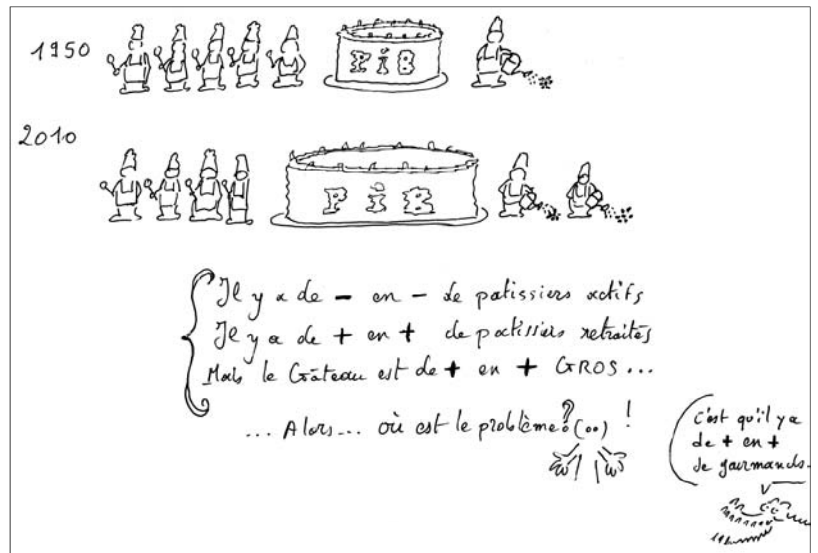 1950
PiB
2010
PiB
Il y a de - en - de patissiers actifs
Il y a de + en + de patissiers retraités
Mais le Gâteau est de + en + GROS ...
... Alors ... où est le problème? !
C'est qu'il y a
de + en +
de gourmands...